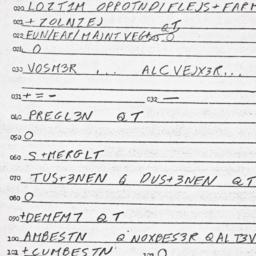 020 LOZT1M OPPOTNDIFLEJS+FARM
021 +ZOLNZEJ
022 EUN/EAF/MAINT VEG QT
02L O
030 VOSM3R ... ALCVEJX3R...
031 +=- 032 —
040 PREGL3N QT
050 O
060 S+MERGLT
070 TUS+3NEN Q DUS+3NEN QT
080 O
090 +DEMFM7 QT
100 AMBESTN Q NOXBES3R QALT3V
101 +CUMBESTN O